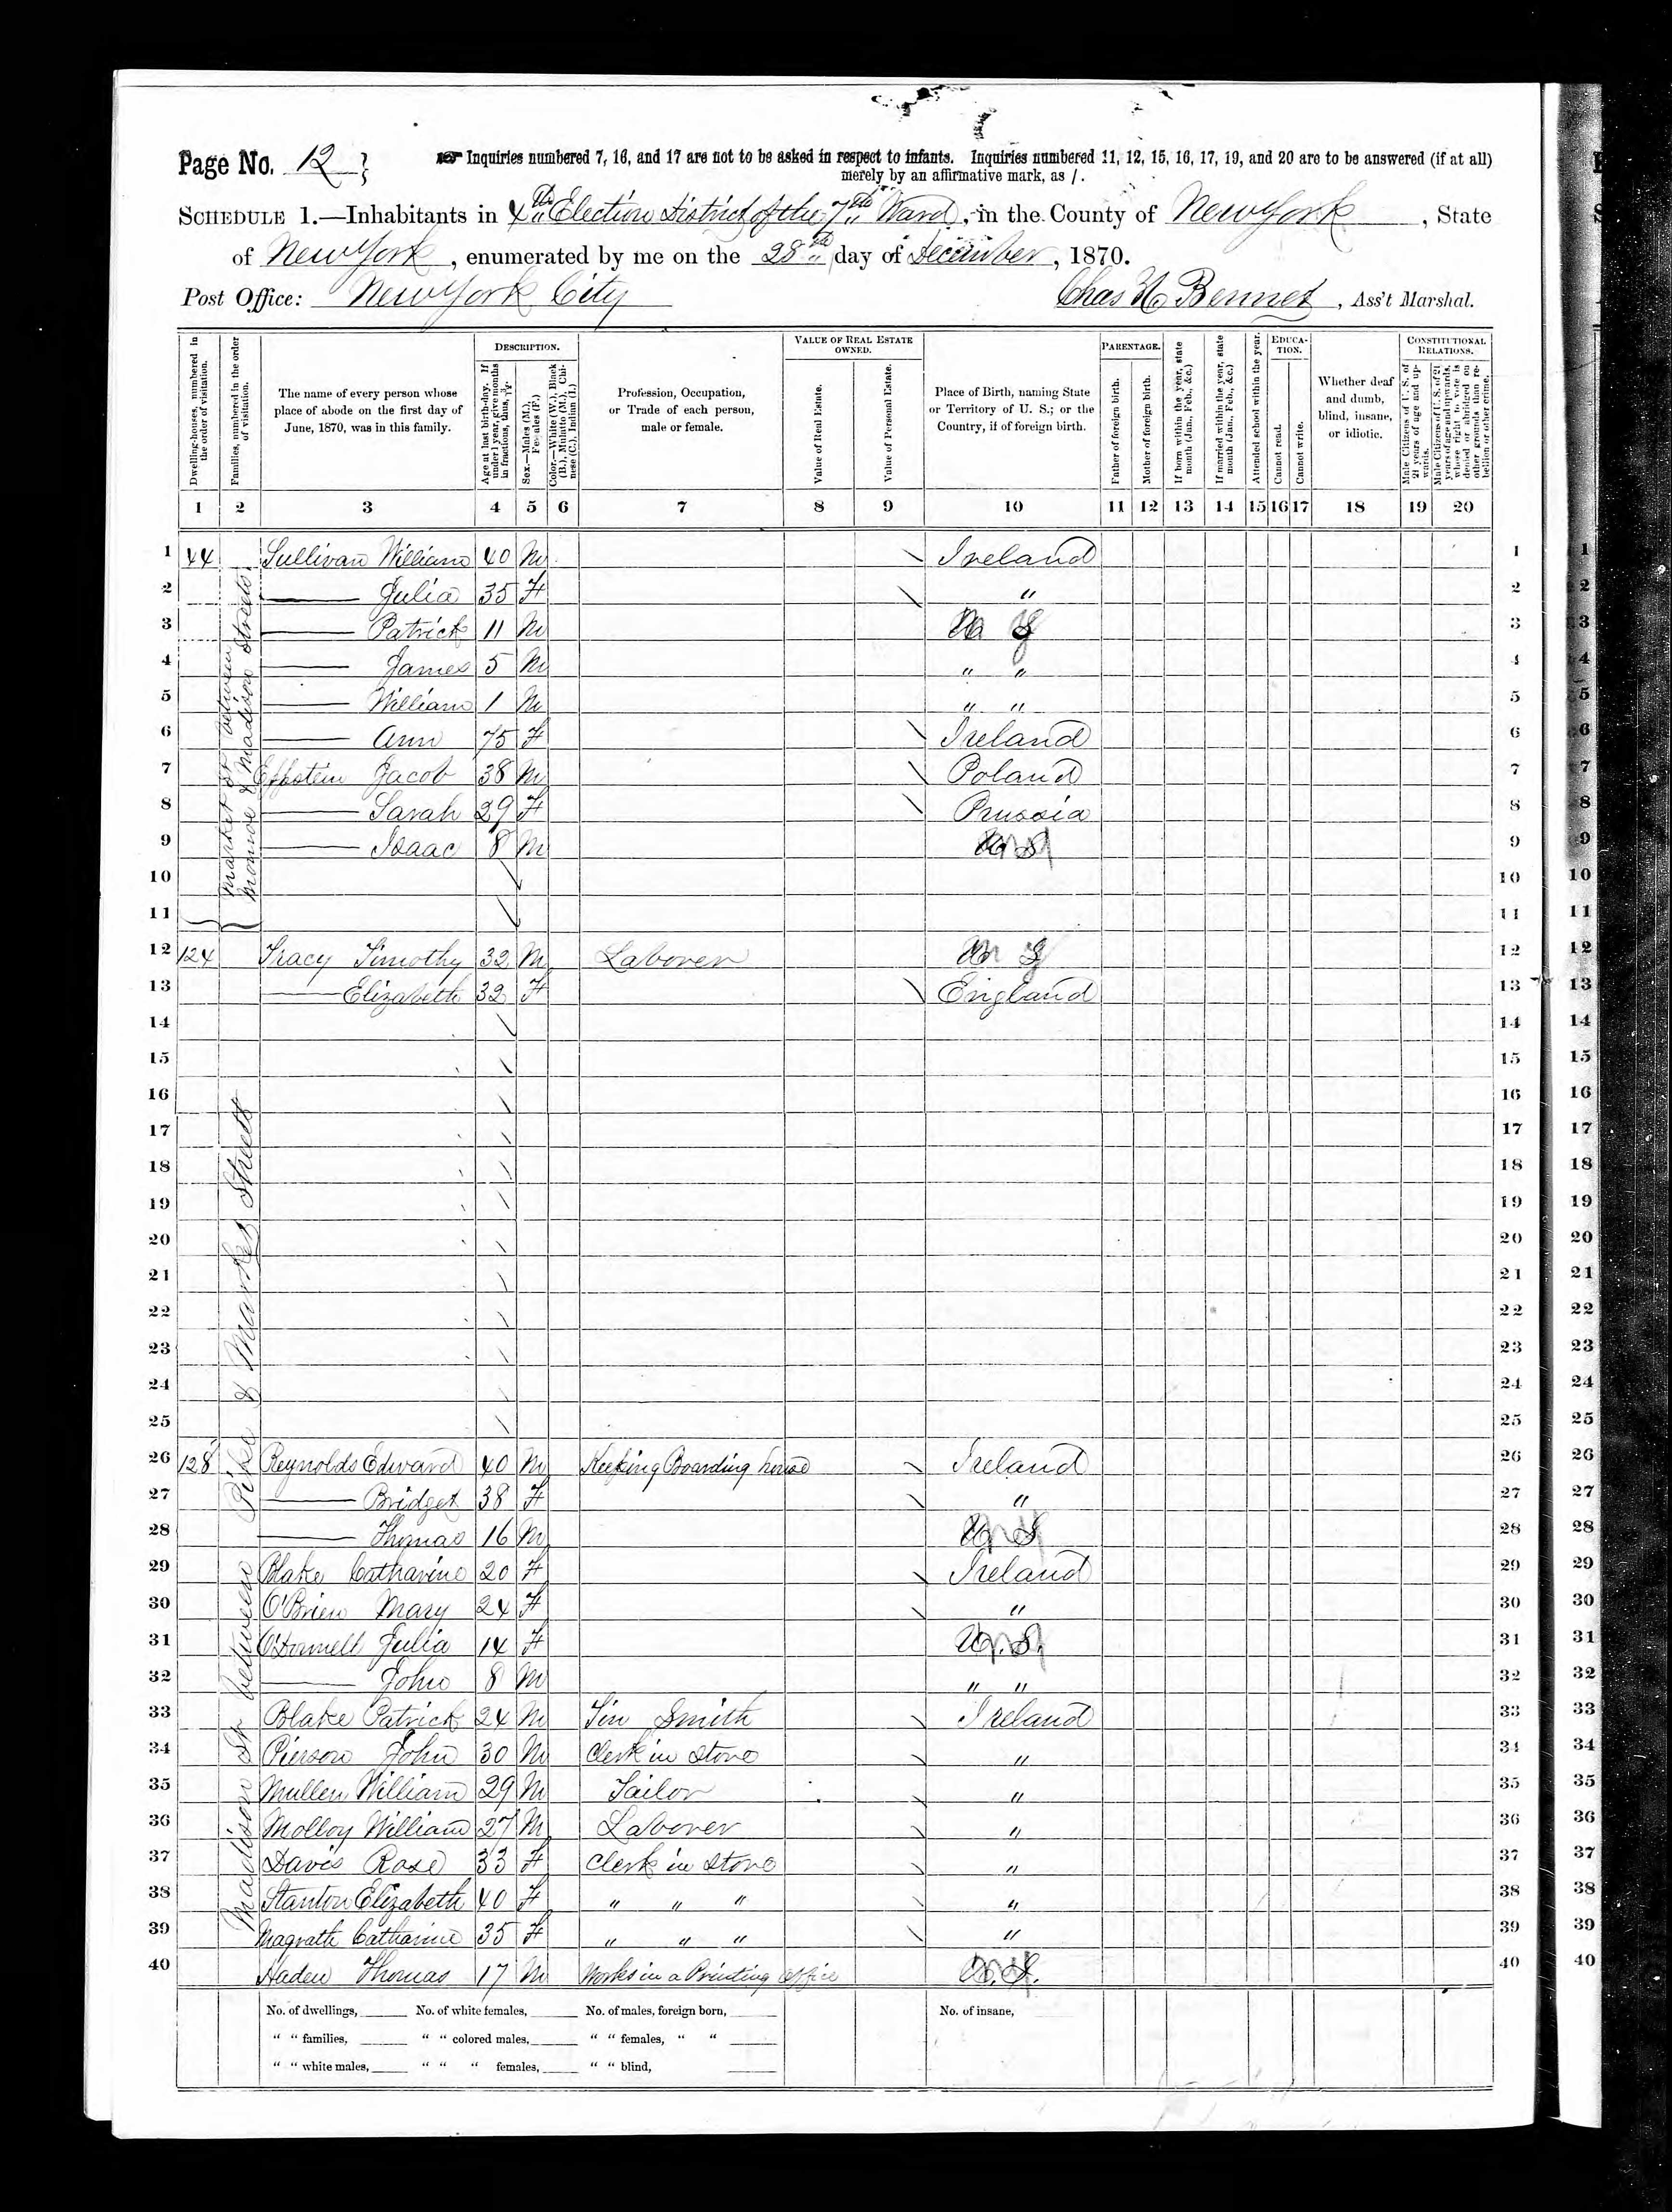 Page No. 12
Inquiries numbered 7, 16, and 17 are not to be asked in respect to infants. Inquiries numbered 11, 12, 15, 16, 17, 19, and 20 are to be answered (if at all)
merely by an affirmative mark, as /.
SCHEDULE 1.—Inhabitants in 4th Election District of the 7th Ward, in the County of New York, State
of New York, enumerated by me on the 28th day of December, 1870.
Post Office: New York City
Chas H Bennet, Ass't Marshal.
Dwelling-houses, numbered in the order of visitation.
Families, numbered in the order of visitation.
The name of every person whose place of abode on the first day of June, 1870, was in this family.
DESCRIPTION.
Age at last birth-day. If under 1 year, give months in fractions, thus, 3/12.
Sex.—Males (M.), Females (F.)
Color.—White (W.), Black (B.), Mulatto (M.), Chinese (C.), Indian (I.)
Profession, Occupation, or Trade of each person, male or female.
VALUE OF REAL ESTATE OWNED.
Value of Real Estate.
Value of Personal Estate.
Place of Birth, naming State or Territory of U. S.; or the Country, if of foreign birth.
PARENTAGE.
Father of foreign birth.
Mother of foreign birth.
If born within the year, state month (Jan., Feb., &c.)
If married within the year, state month (Jan., Feb., &c.)
Attended school within the year.
EDUCATION.
Cannot read.
Cannot write.
Whether deaf and dumb, blind, insane, or idiotic.
CONSTITUTIONAL RELATIONS.
Male Citizens of U. S. of 21 years of age and upwards.
Male Citizens of U. S. of 21 years of age and upwards, whose right to vote is denied or abridged on other grounds than rebellion or other crime.
1 2 3 4 5 6 7 8 9 10 11 12 13 14 15 16 17 18 19 20
Market St between Monroe & Madison Streets
1 44 Sullivan William 40 M Ireland 1
2 —— Julia 35 F " 2
3 —— Patrick 11 M N Y 3
4 —— James 5 M " " 4
5 —— William 1 M " " 5
6 —— Ann 75 F Ireland 6
7 Eppstein Jacob 38 M Poland 7
8 —— Sarah 29 F Prussia 8
9 —— Isaac 8 M 9
10 10
11 11
12 124 Tracy Timothy 32 M Laborer N Y 12
13 —— Elizabeth 32 F England 13
14 14
15 15
16 16
17 17
18 18
19 19
20 20
21 21
22 22
23 23
24 24
25 25
Madison St between Pike & Market Streets
26 128 Reynolds Edward 40 M Keeping Boarding house Ireland 26
27 —— Bridget 38 F " 27
28 —— Thomas 16 M 28
29 Blake Catharine 20 F Ireland 29
30 O'Brien Mary 24 F " 30
31 O'Donnell Julia 14 F 31
32 —— John 8 M " " 32
33 Blake Patrick 24 M Tin Smith Ireland 33
34 Pierson John 30 M Clerk in Store " 34
35 Mullen William 29 M Tailor " 35
36 Molloy William 27 M Laborer " 36
37 Davis Rose 33 F Clerk in Store " 37
38 Stanton Elizabeth 40 F " " " " 38
39 Magrath Catharine 35 F " " " " 39
40 Haden Thomas 17 M Works in a Printing Office 40
No. of dwellings, No. of white females, No. of males, foreign born, No. of insane,
" " families, " " colored males, " " females, " "
" " white males, " " " females, " " blind,